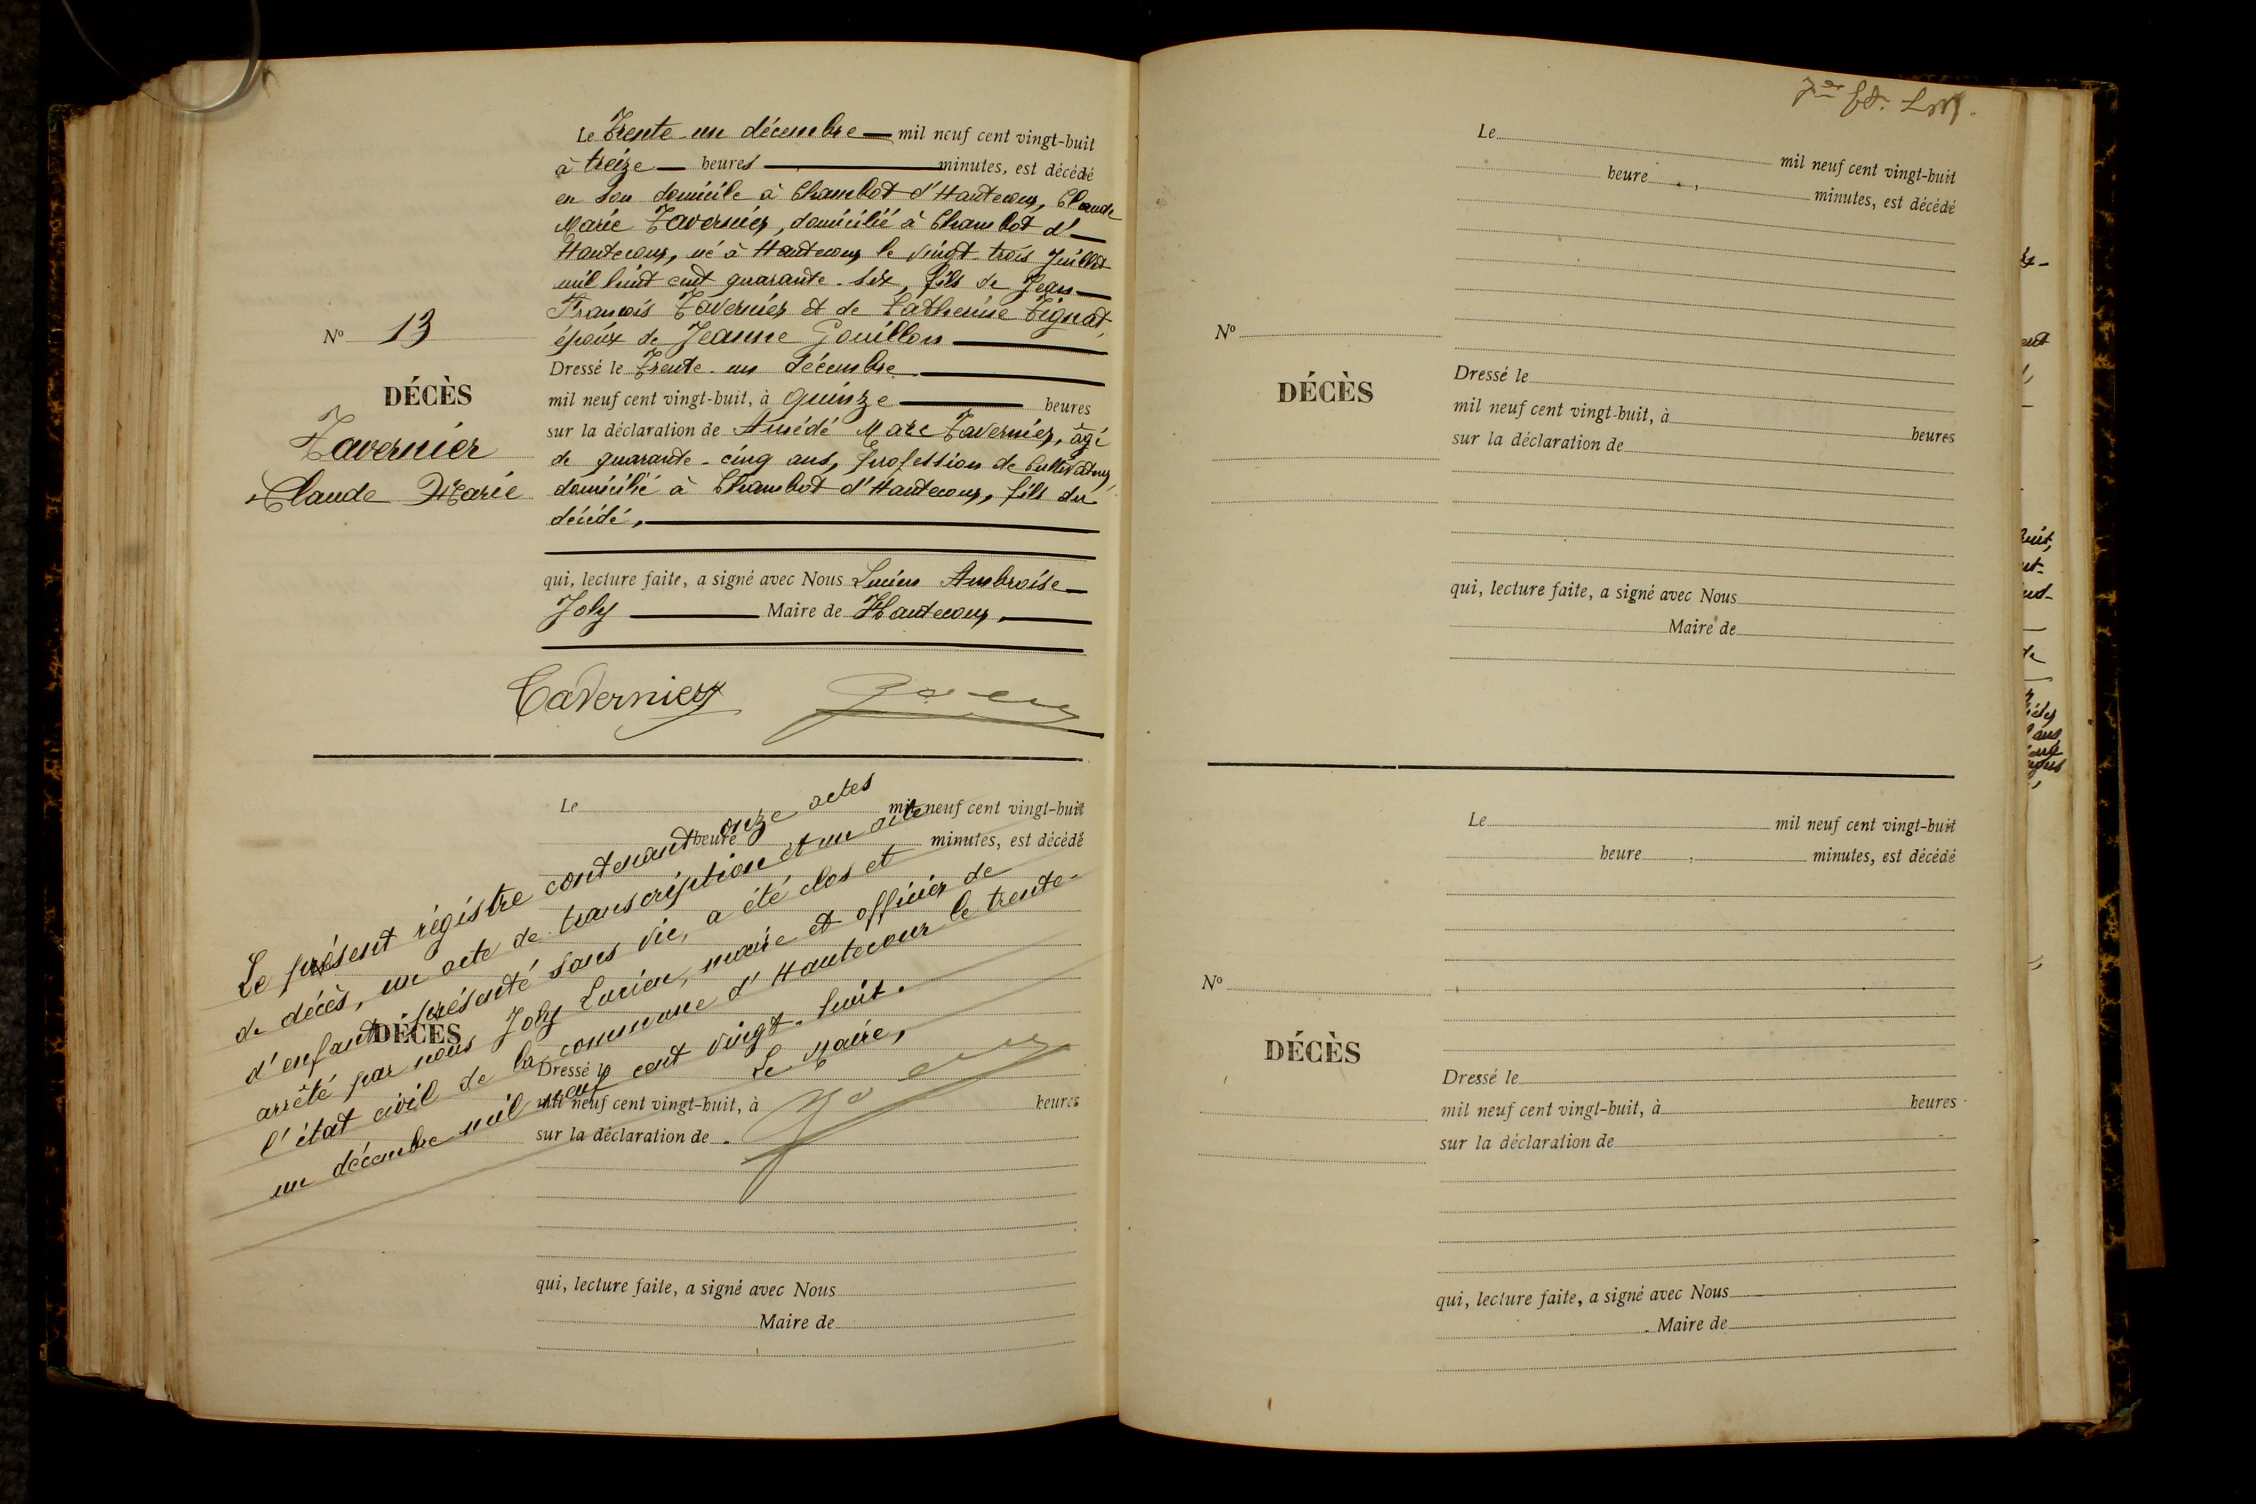 Le Trente-un décembre mil neuf cent vingt-huit
à treize heures minutes, est décédé
en son domicile à Chambod d'Hautecour, Claude
Marie Tavernier, domicilié à Chambod d'
Hautecour, né à Hautecour le vingt-trois Juillet
mil huit cent quarante-six, fils de Jean
François Tavernier et de Catherine Tignat,
époux de Jeanne Gouillon
Nº 13
DÉCÈS
Tavernier
Claude Marie
Dressé le Trente-un décembre
mil neuf cent vingt-huit, à quinze heures
sur la déclaration de Amédé Marc Tavernier, âgé
de quarante-cinq ans, profession de Cultivateur,
domicilié à Chambod d'Hautecour, fils du
décédé,
qui, lecture faite, a signé avec Nous Lucien Ambroise
Joly Maire de Hautecour,
Tavernier
Le mil neuf cent vingt-huit
heure minutes, est décédé
DÉCÈS
Dressé le
mil neuf cent vingt-huit, à heures
sur la déclaration de
qui, lecture faite, a signé avec Nous
Maire de
Le présent régistre contenant onze actes
de décès, un acte de transcription et un acte
d'enfant présenté sans vie, a été clos et
arrêté par nous Joly Lucien, maire et officier de
l'état civil de la commune d'Hautecour le trente-
un décembre mil neuf cent vingt-huit.
Le Maire,
Le mil neuf cent vingt-huit
heure minutes, est décédé
Nº
DÉCÈS
Dressé le
mil neuf cent vingt-huit, à heures
sur la déclaration de
qui, lecture faite, a signé avec Nous
Maire de
Le mil neuf cent vingt-huit
heure minutes, est décédé
Nº
DÉCÈS
Dressé le
mil neuf cent vingt-huit, à heures
sur la déclaration de
qui, lecture faite, a signé avec Nous
Maire de